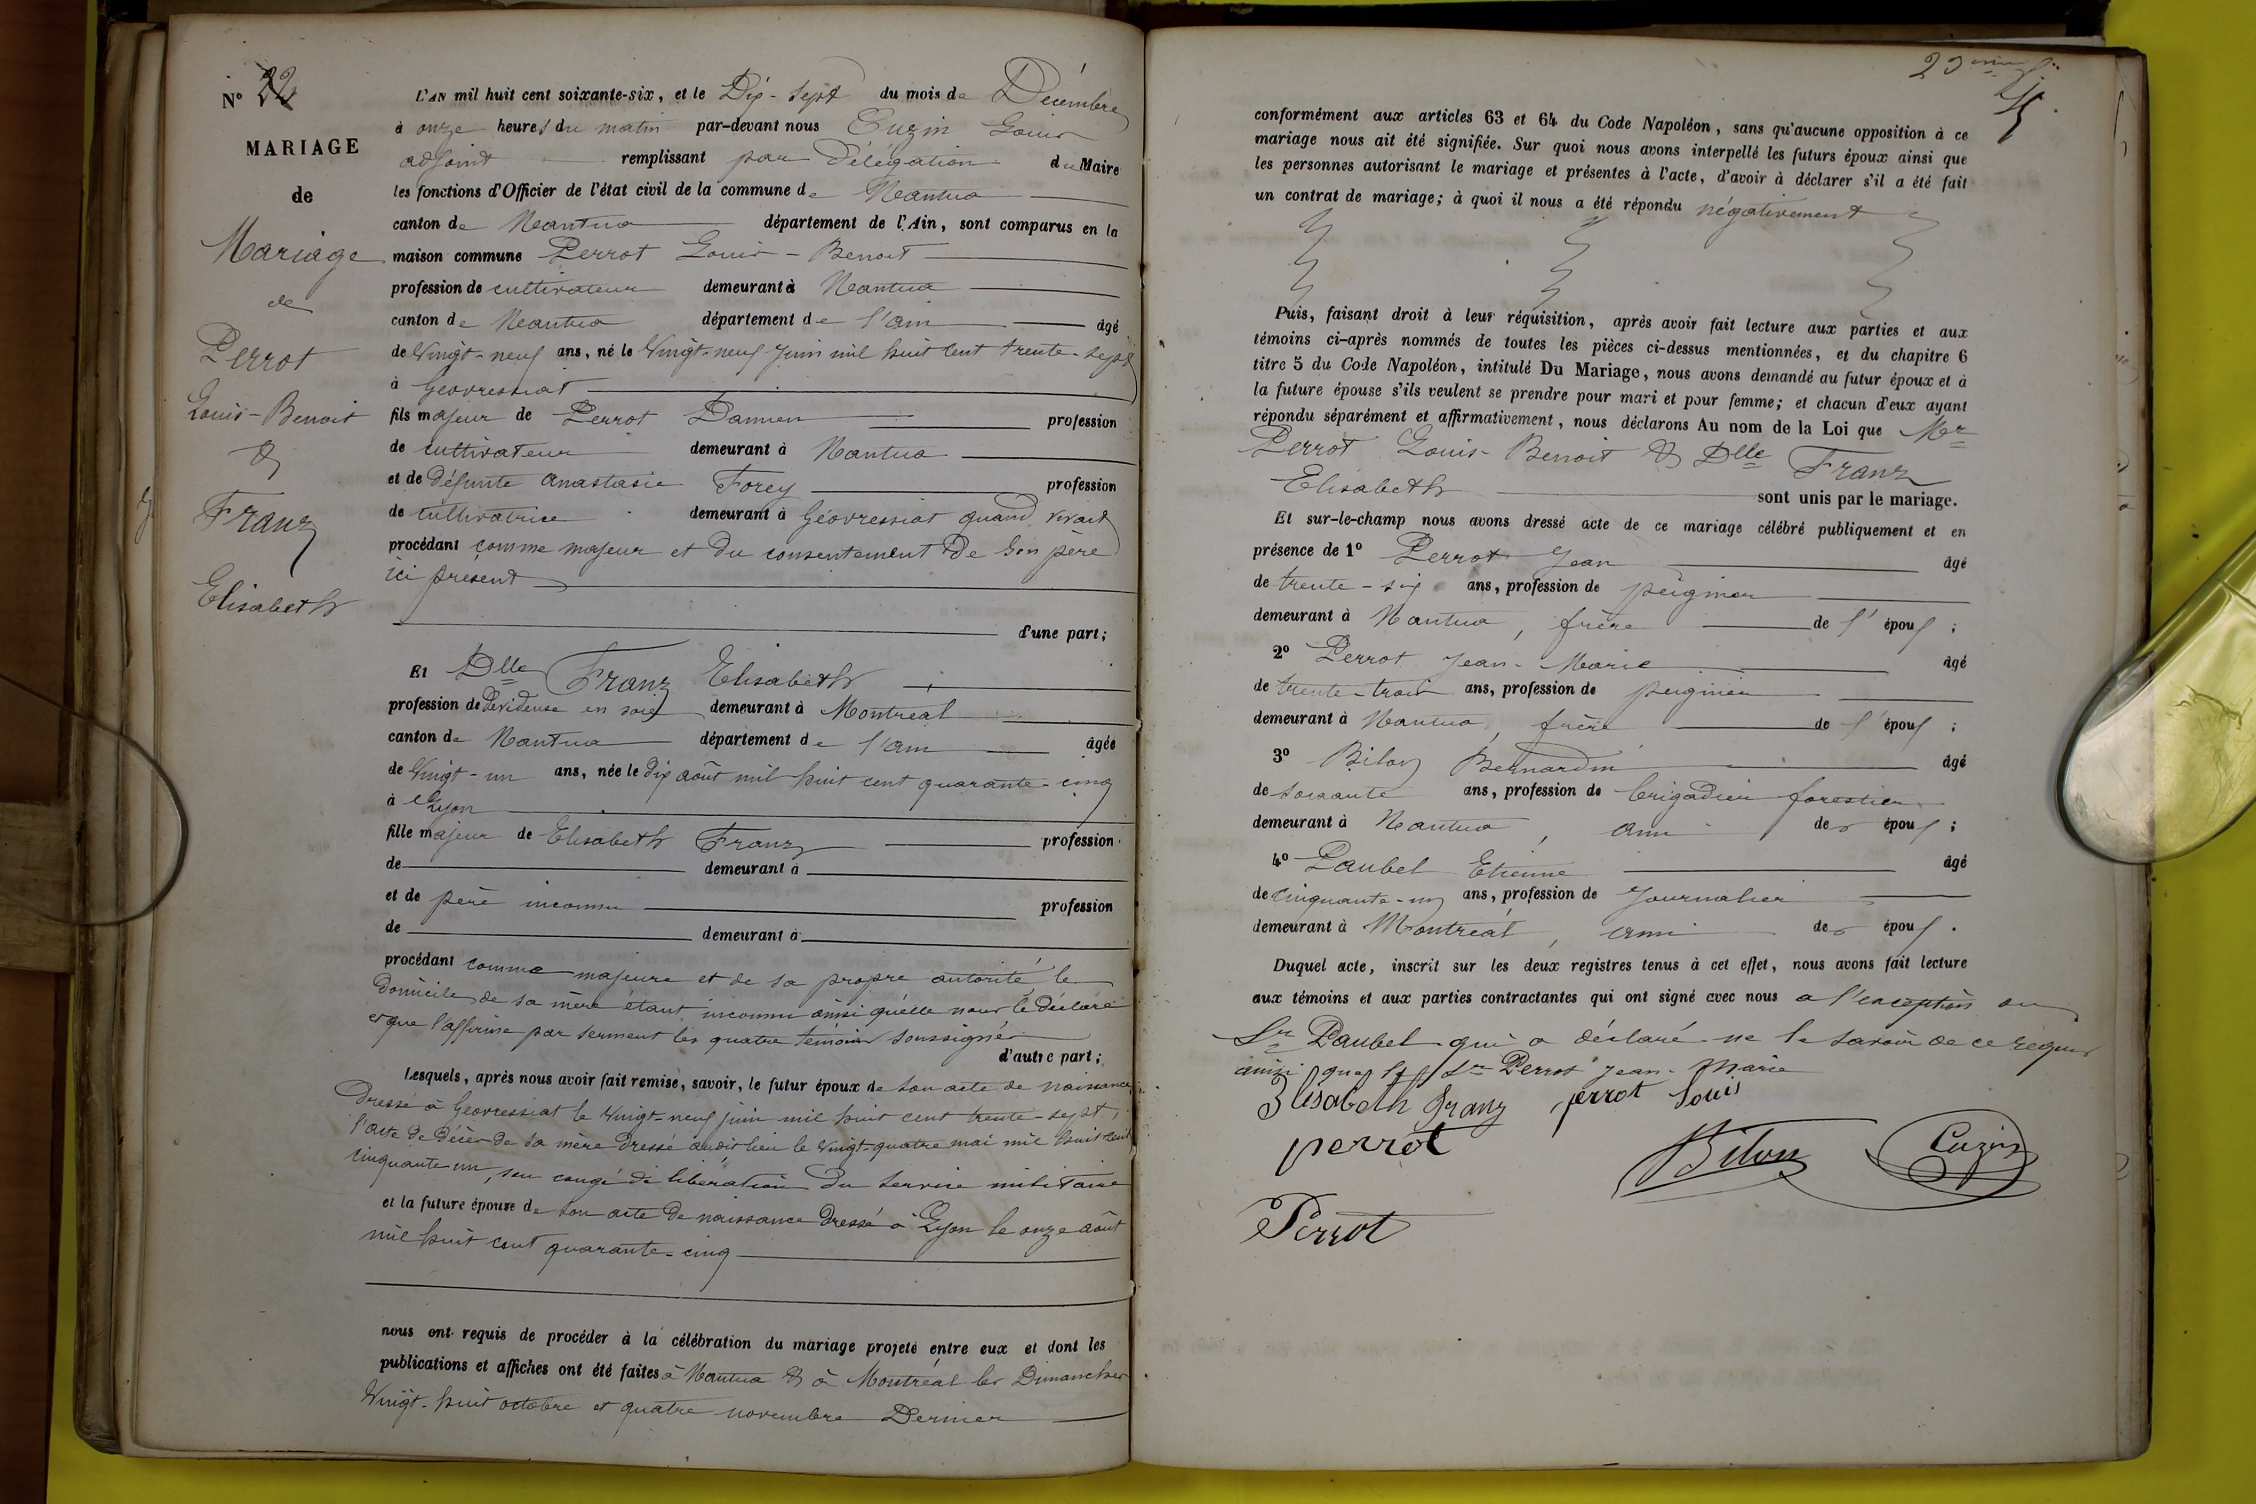 N° 22
MARIAGE
de
Mariage
de
Perrot
Louis-Benoit
&
Franz
Elisabeth
L'AN mil huit cent soixante-six, et le Dix-Sept du mois de Décembre
à onze heures du matin par-devant nous Cuzin Louis
adjoint remplissant par Délégation du Maire
les fonctions d'Officier de l'état civil de la commune de Nantua
canton de Nantua département de l'Ain, sont comparus en la
maison commune Perrot Louis-Benoit
profession de cultivateur demeurant à Nantua
canton de Nantua département de l'ain âgé
de Vingt-neuf ans, né le Vingt-neuf Juin mil huit cent trente-sept
à Géovressiat
fils majeur de Perrot Damien profession
de cultivateur demeurant à Nantua
et de Défunte Anastasie Forey profession
de cultivatrice demeurant à Géovressiat quand vivait
procédant comme majeur et du consentement De Son père
ici présent
d'une part;
Et Dlle Franz Elisabeth
profession de Dévideuse en soie demeurant à Montréal
canton de Nantua département de l'ain âgée
de Vingt-un ans, née le dix août mil huit cent quarante-cinq
à Lyon
fille majeur de Elisabeth Franz profession
de demeurant à
et de père inconnu profession
de demeurant à
procédant comme majeure et de sa propre autorité le
Domicile de sa mère étant inconnu ainsi qu'elle nous le déclare
et que l'affirme par serment les quatre témoins soussignés
d'autre part;
Lesquels, après nous avoir fait remise, savoir, le futur époux de son acte de naissance
Dressé à Géovressiat le Vingt-neuf juin mil huit cent trente-sept,
l'acte de Décès de sa mère Dressé audit lieu le Vingt-quatre mai mil huit cent
cinquante-un, son congé de libération du service militaire
et la future épouse de son acte de naissance Dressé à Lyon le onze août
mil huit cent quarante-cinq
nous ont requis de procéder à la célébration du mariage projeté entre eux et dont les
publications et affiches ont été faites à Nantua & à Montréal les Dimanches
Vingt-huit octobre et quatre novembre Dernier
conformément aux articles 63 et 64 du Code Napoléon, sans qu'aucune opposition à ce
mariage nous ait été signifiée. Sur quoi nous avons interpellé les futurs époux ainsi que
les personnes autorisant le mariage et présentes à l'acte, d'avoir à déclarer s'il a été fait
un contrat de mariage; à quoi il nous a été répondu négativement
Puis, faisant droit à leur réquisition, après avoir fait lecture aux parties et aux
témoins ci-après nommés de toutes les pièces ci-dessus mentionnées, et du chapitre 6
titre 5 du Code Napoléon, intitulé Du Mariage, nous avons demandé au futur époux et à
la future épouse s'ils veulent se prendre pour mari et pour femme; et chacun d'eux ayant
répondu séparément et affirmativement, nous déclarons Au nom de la Loi que Mr
Perrot Louis-Benoit & Dlle Franz
Elisabeth sont unis par le mariage.
Et sur-le-champ nous avons dressé acte de ce mariage célébré publiquement et en
présence de 1° Perrot Jean âgé
de trente-six ans, profession de peignier
demeurant à Nantua, frère de l'époux;
2° Perrot Jean-Marie âgé
de trente-trois ans, profession de peignier
demeurant à Nantua, frère de l'époux;
3° Bilon Bernardin âgé
de soixante ans, profession de brigadier forestier
demeurant à Nantua, ami des époux;
4° Paubel Etienne âgé
de cinquante-un ans, profession de Journalier
demeurant à Montréal, ami des époux.
Duquel acte, inscrit sur les deux registres tenus à cet effet, nous avons fait lecture
aux témoins et aux parties contractantes qui ont signé avec nous a l'exception du
Sr Paubel qui a déclaré ne le savoir de ce requis
ainsi que le Sr Perrot Jean-Marie
Elisabeth Franz perrot louis
perrot Bilon Cuzin
Perrot